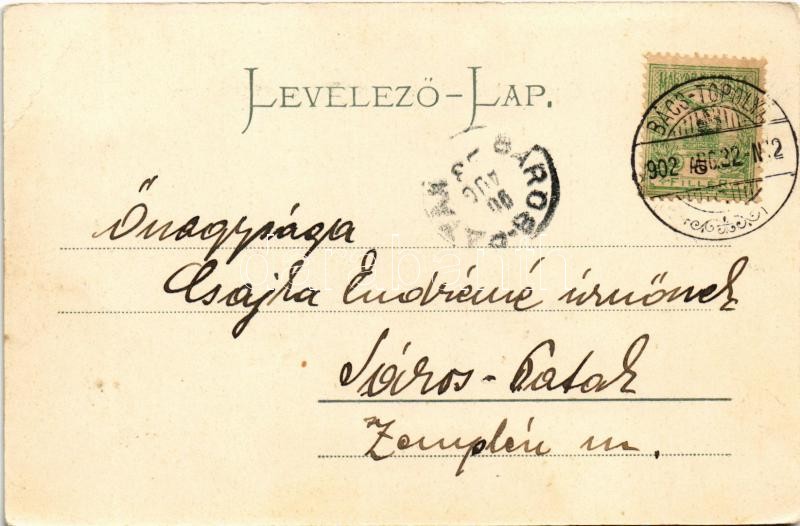 LEVELEZŐ-LAP.
BÁCS-TOPOLYA
902 AUG. 22 - N
FILLÉR
SÁROS-PATAK
AUG
Őnagysága
Csajka Endréné úrnőnek
Sáros-Patak
Zemplén m.
darabanth